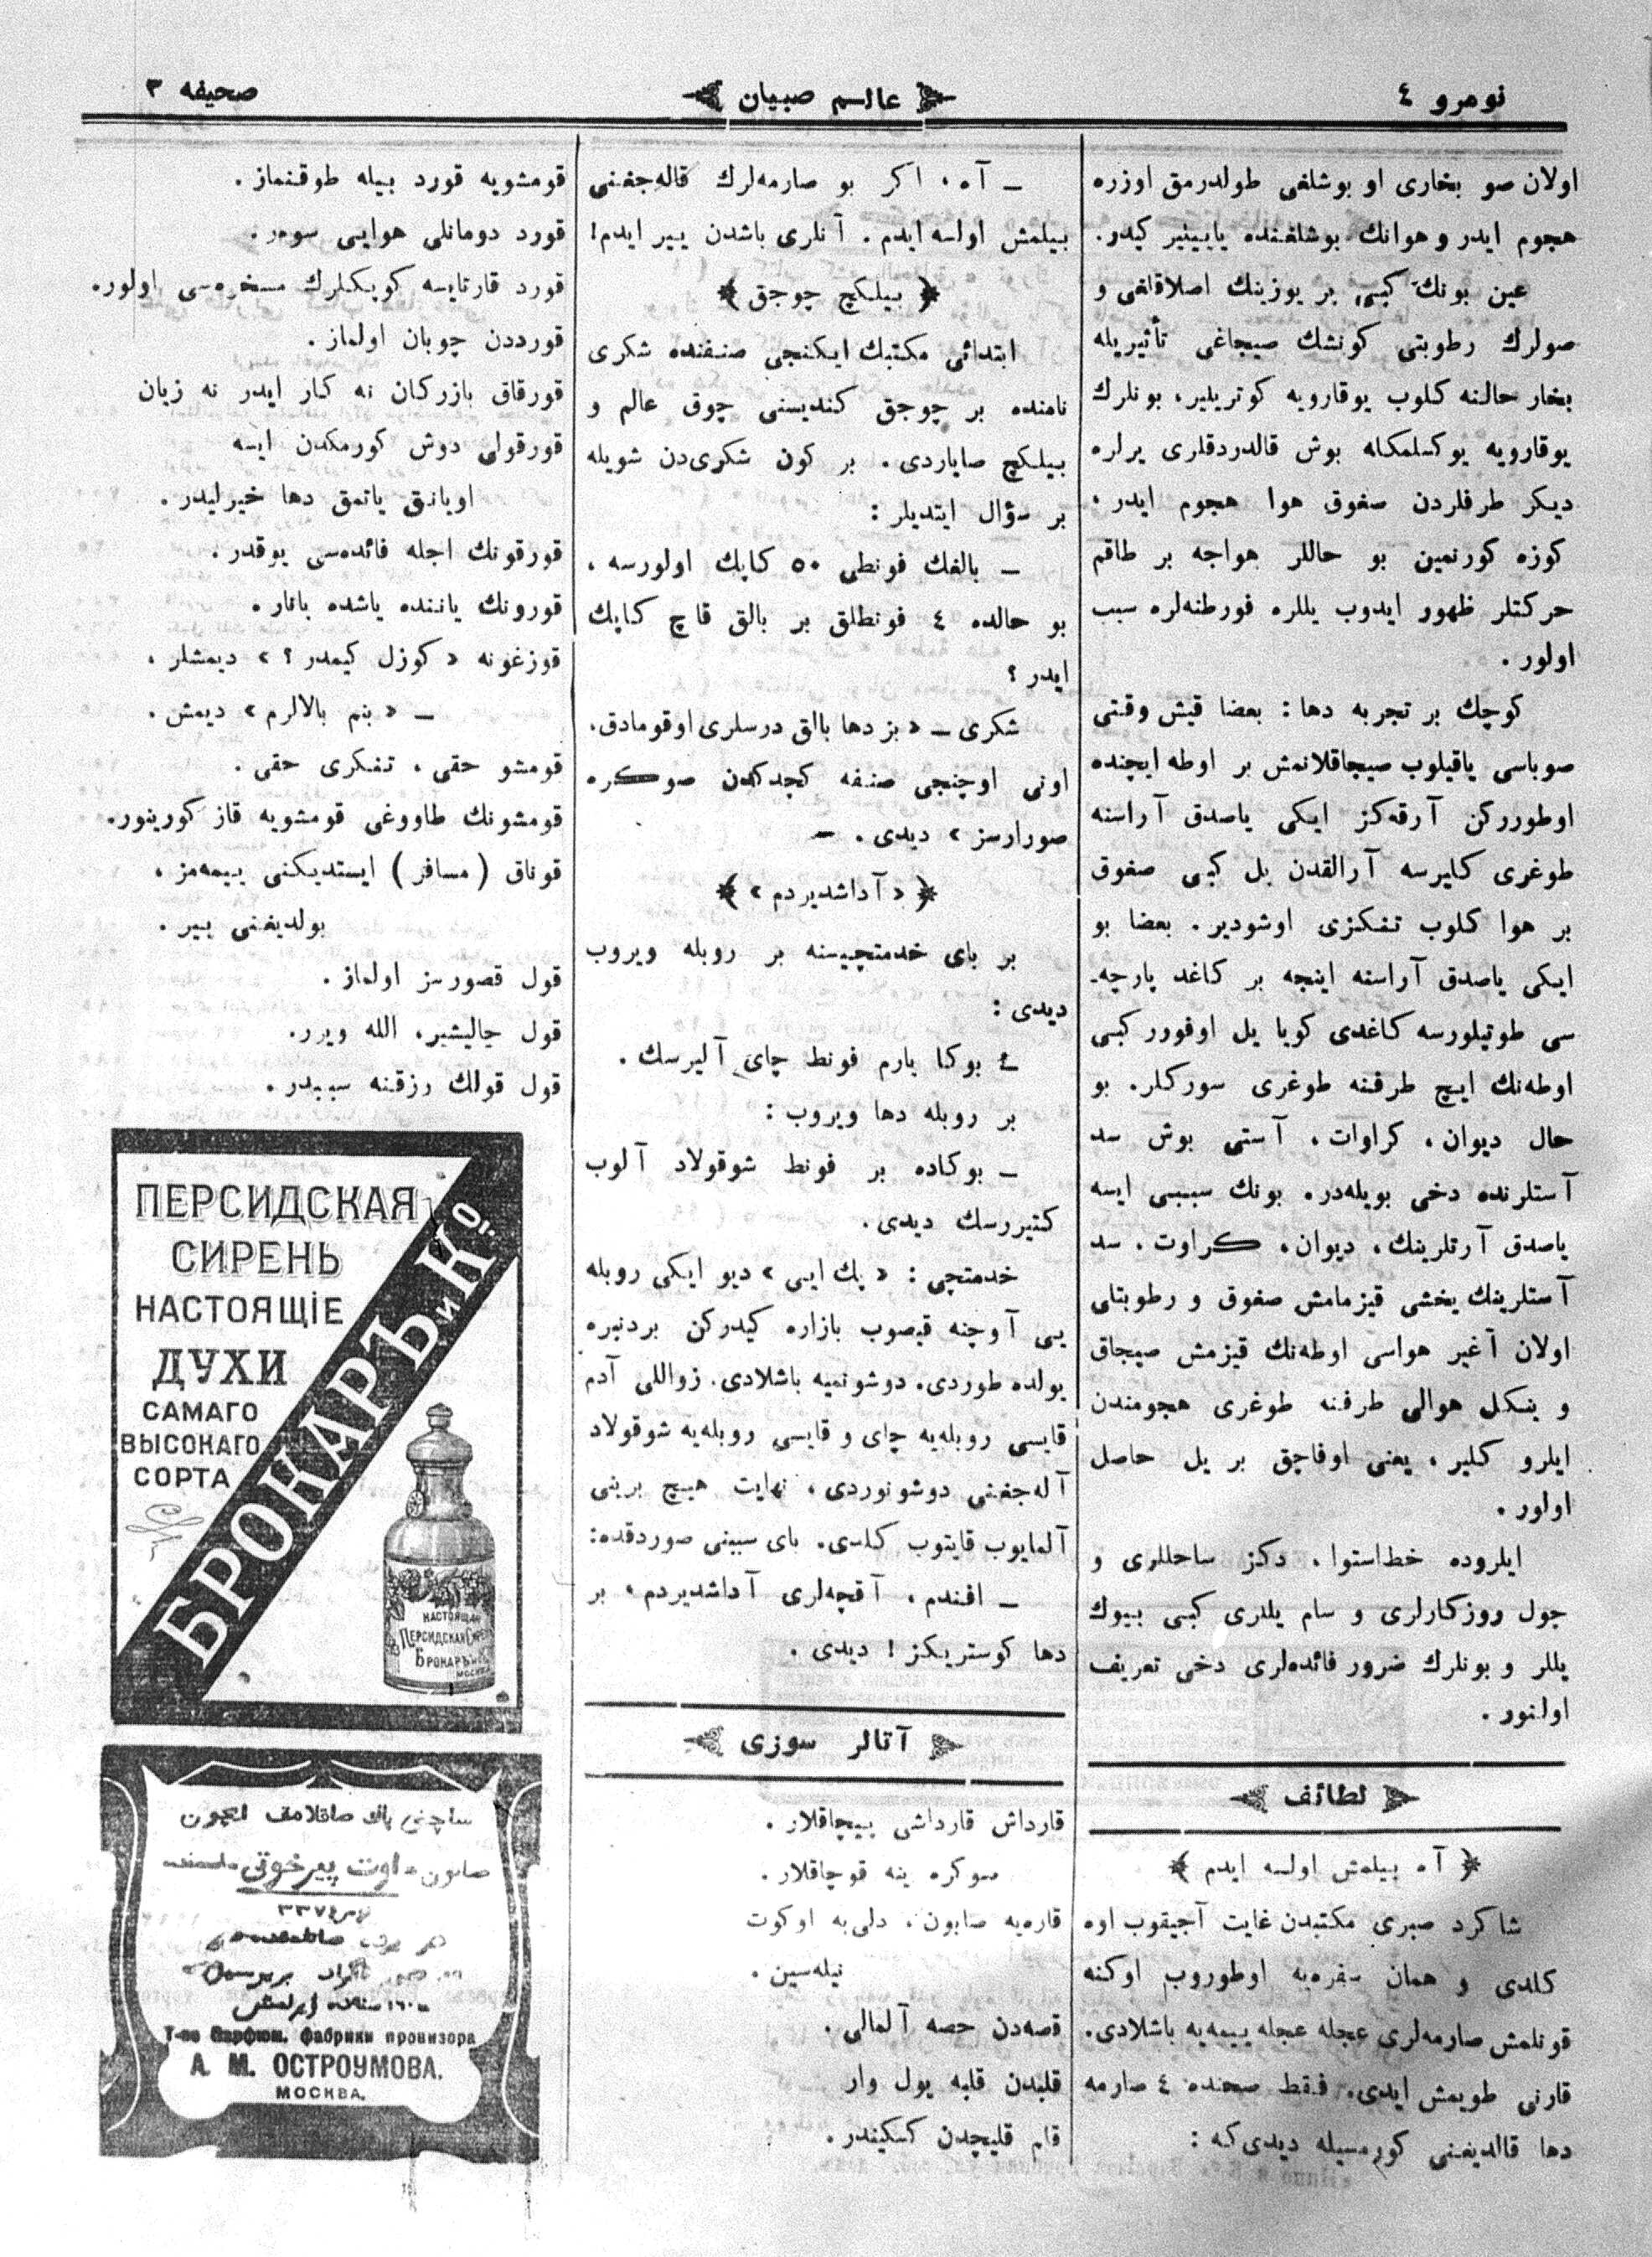 نومرو ٤
عالم صبيان
صحيفه ٣
اولان صو بخاری او بوشلغی طولدرمق اوزره
هجوم ايدر و هوانك بوشلغنده يايينير كيدر.
عين بونك كبی بر يوزينك اصلاقلغی و
صولرك رطوبتی كونشك صيجاغی تأثيريله
بخار حالنه كلوب يوقارويه كوتريلير، بونلرك
يوقارويه يوكسلمكله بوش قالدردقلری يرلره
ديكر طرفلردن صغوق هوا هجوم ايدر.
كوزه كورنمين بو حاللر هواجه بر طاقم
حركتلر ظهور ايدوب يللره فورطنه‌لره سبب
اولور.
كوچك بر تجربه دها: بعضا قيش وقتی
صوباسی ياقيلوب صيجاقلانمش بر اوطه ايچنده
اوطورركن آرقه‌كز ايكی ياصدق آراسنه
طوغری كليرسه آرالقدن يل كبی صغوق
بر هوا كلوب تنكزی اوشودير. بعضا بو
ايكی ياصدق آراسنه اينجه بر كاغد پارچه‌-
سی طوتيلورسه كاغدی كويا يل اوفورر كبی
اوطه‌نك ايچ طرفنه طوغری سوركلر. بو
حال ديوان، كراوات، آستی بوش سد
آستلرنده دخی بويله‌در. بونك سببی ايسه
ياصدق آرتلرينك، ديوان، كراوت، سد
آستلرينك يخشی قيزمامش صغوق و رطوبتلی
اولان آغير هواسی اوطه‌نك قيزمش صيجاق
و ينكل هوالی طرفنه طوغری هجومندن
ايلرو كلير، يعنی اوفاجق بر يل حاصل
اولور.
ايلروده خط‌استوا، دكز ساحللری و
چول روزكارلری و سام يللری كبی بيوك
يللر و بونلرك ضرور فائده‌لری دخی تعريف
اولنور.
لطائف
﴿ آه بيلمش اولسه ايدم ﴾
شاكرد صبری مكتبدن غايت آجيقوب اوه
كلدی و همان سفره‌يه اوطوروب اوكنه
قونلمش صارمه‌لری عجله عجله ييمه‌يه باشلادی.
قارنی طويمش ايدی. فقط صحنده ٤ صارمه
دها قالديغنی كورمسيله ديدی كه:
— آه، اكر بو صارمه‌لرك قاله‌جغنی
بيلمش اولسه ايدم. آنلری باشدن يير ايدم!
﴿ بيلكچ چوجق ﴾
ابتدائی مكتبك ايكنجی صنفنده شكری
نامنده بر چوجق كنديسنی چوق عالم و
بيلكچ صاياردی. بر كون شكری‌دن شويله
بر سؤال ايتديلر:
— بالغك فونطی ٥٠ كاپك اولورسه،
بو حالده ٤ فونطلق بر بالق قاچ كاپك
ايدر؟
شكری — «بز دها بالق درسلری اوقومادق.
اونی اوچنجی صنفه كچدكدن صوكره
صورارسز» ديدی. —
﴿ «آداشديردم» ﴾
بر بای خدمتچيسنه بر روبله ويروب
ديدی:
— بوكا يارم فونط چای آليرسك.
بر روبله دها ويروب:
— بوكاده بر فونط شوقولاد آلوب
كتيررسك ديدی.
خدمتچی: «پك ايی» ديو ايكی روبله
يی آوجنه قيصوب بازاره كيدركن بردنبره
يولده طوردی. دوشونميه باشلادی. زواللی آدم
قايسی روبله‌يه چای و قايسی روبله‌يه شوقولاد
آله‌جغنی دوشونوردی، نهايت هيچ برينی
آلمايوب قايتوب كلدی. بای سببنی صوردقده:
— افندم، آقچه‌لری آداشديردم، بر
دها كوستريكز! ديدی.
آتالر سوزی
قارداش قارداشی پيچاقلار.
صوكره ينه قوچاقلار.
قاره‌يه صابون، دلی‌يه اوكوت
نيله‌سين.
قصه‌دن حصه آلمالی.
قلبدن قلبه يول وار
قلم قليچدن كسكيندر.
قومشويه قورد بيله طوقنماز.
قورد دومانلی هوايی سور.
قورد قارتايسه كوپكلرك مسخره‌سی اولور.
قورددن چوبان اولماز.
قورقاق بازركان نه كار ايدر نه زيان
قورقولی دوش كورمكدن ايسه
اويانق ياتمق دها خيرليدر.
قورقونك اجله فائده‌سی يوقدر.
قورونك ياننده ياشده يانار.
قوزغونه «كوزل كيمدر؟» ديمشلر،
— «بنم بالالرم» ديمش.
قومشو حقی، تنكری حقی.
قومشونك طاووغی قومشويه قاز كورينور.
قوناق (مسافر) ايستديكنی ييمه‌مز،
بولديغنی يير.
قول قصورسز اولماز.
قول چاليشير، الله ويرر.
قول قولك رزقنه سببدر.
ПЕРСИДСКАЯ
СИРЕНЬ
НАСТОЯЩІЕ
ДУХИ
САМАГО
ВЫСОКАГО
СОРТА
БРОКАРЪ и Ко
НАСТОЯЩАЯ
ПЕРСИДСКАЯ СИРЕНЬ
БРОКАРЪ и Ко
МОСКВА
ساچنی پاك صاقلامق ايچون
صابون
٣٣٧
Т-во Парфюм. фабрики провизора
А. М. ОСТРОУМОВА.
МОСКВА.